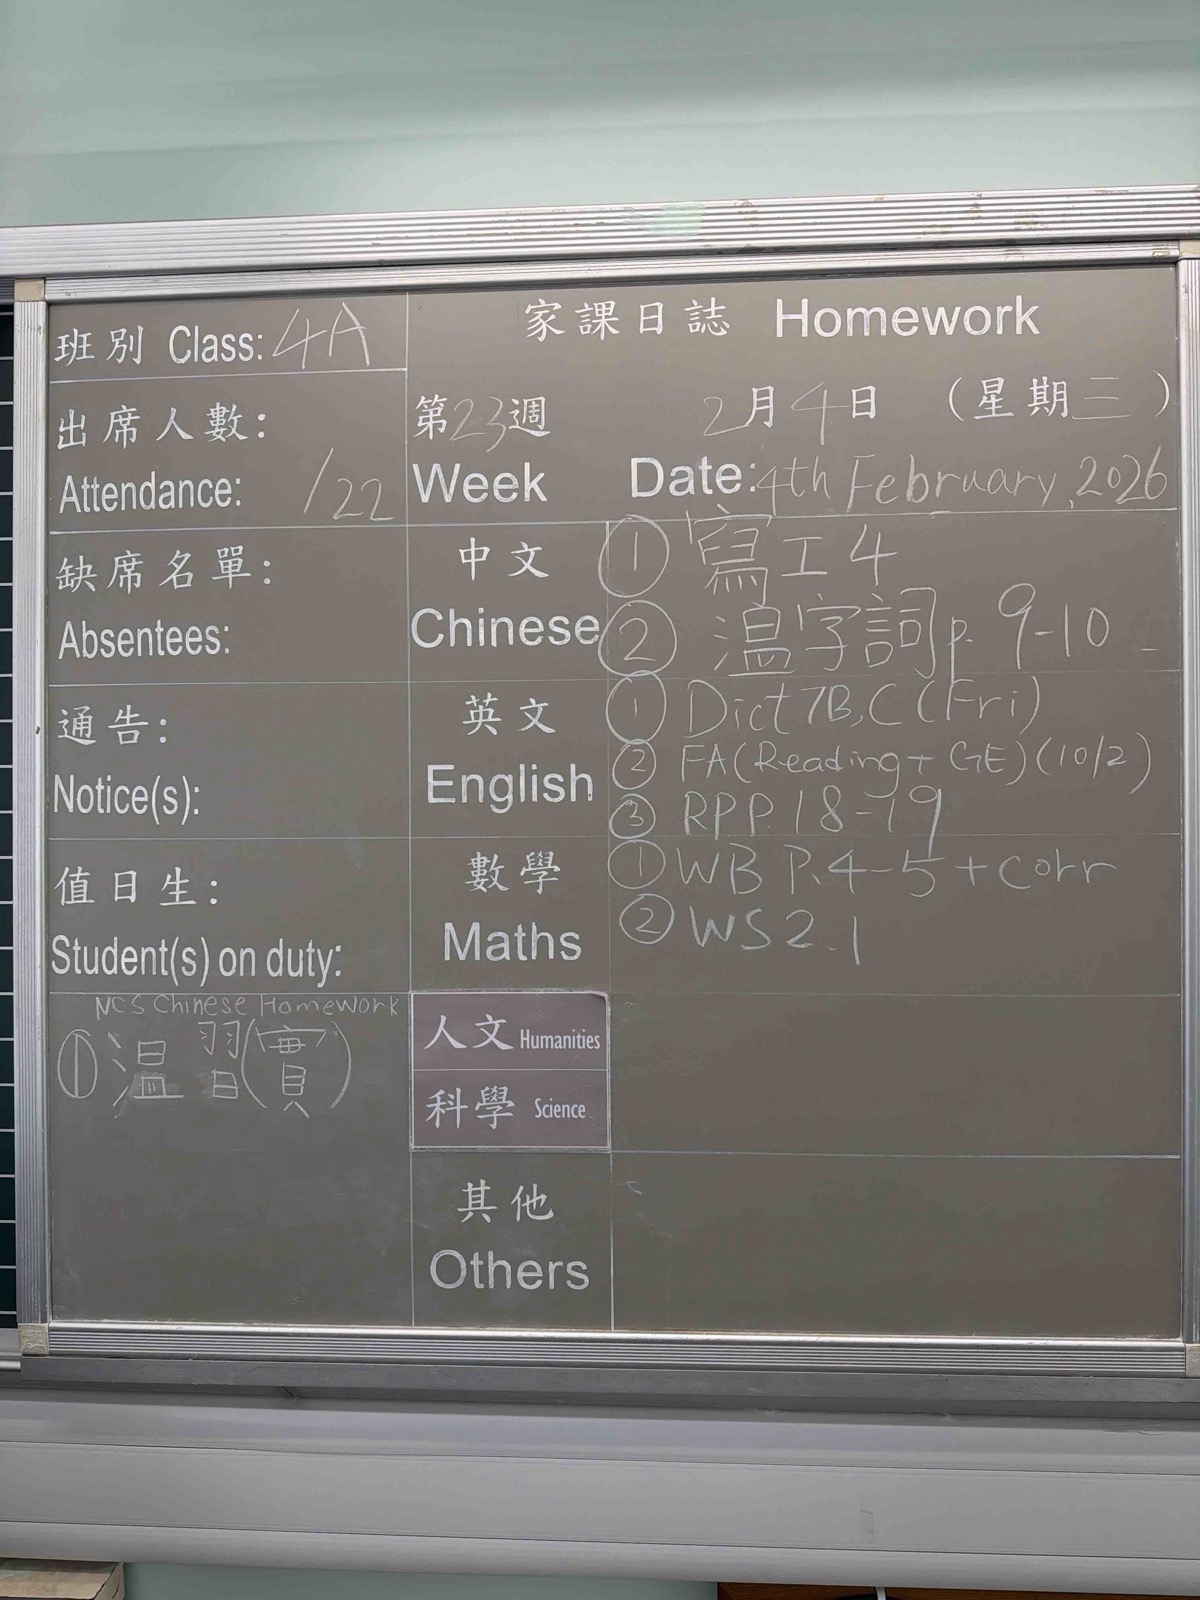 班別 Class: 4A
出席人數:
Attendance: /22
缺席名單:
Absentees:
通告:
Notice(s):
值日生:
Student(s) on duty:
NCS Chinese Homework
① 温習(實)
家課日誌 Homework
第23週 2月4日 (星期三)
Week Date: 4th February, 2026
中文
Chinese
① 寫工4
② 温字詞p. 9-10
英文
English
① Dict 7B,C (Fri)
② FA (Reading + GE) (10/2)
③ RP P.18-19
數學
Maths
① WB P.4-5 + corr
② WS2.1
人文 Humanities
科學 Science
其他
Others